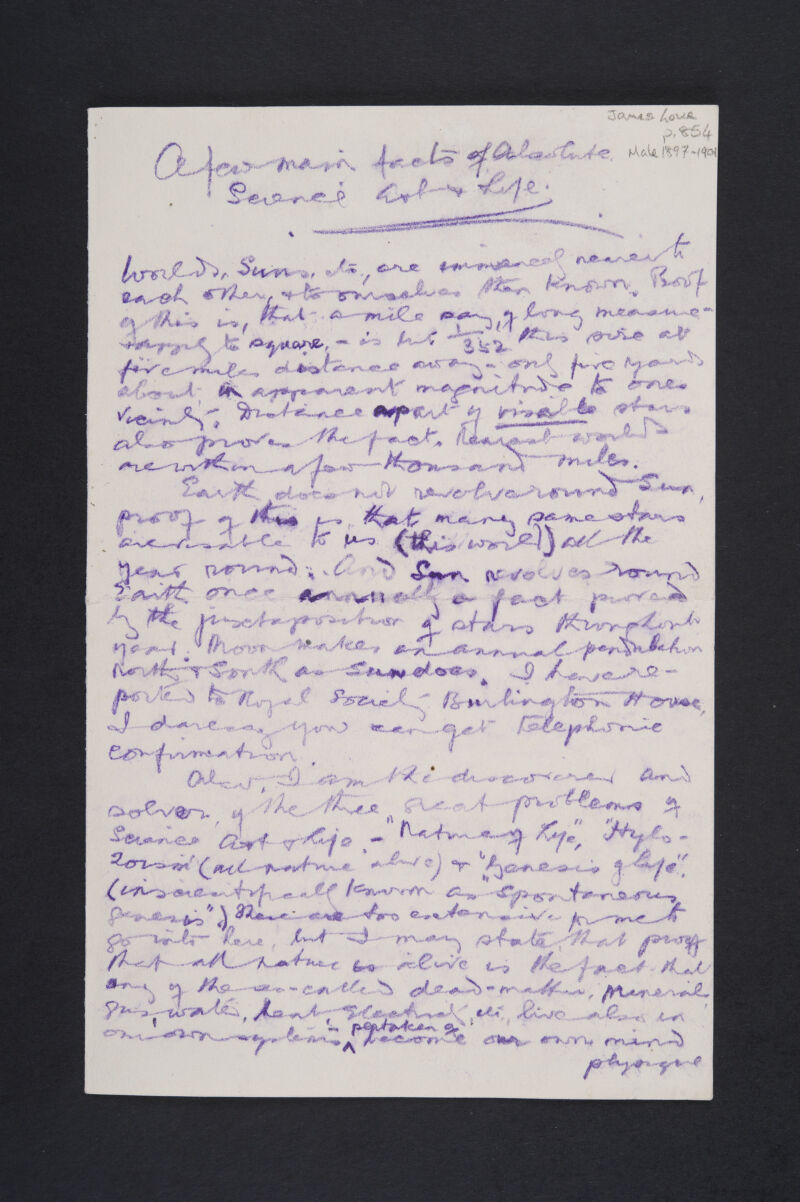 James Love
p.854
Male 1897-1901
A few main facts of Absolute
Science Art & Life.
Worlds, Suns, etc, are immensely nearer to
each other, & to ourselves than known. Proof
of this is, that a mile say, of long measure -
to square, - is but 1/352 this size at
five miles distance away - only five yards
about in apparent magnitude to ones
vicinity. Distance apart of visible stars
also proves the fact. Nearest worlds
are within a few thousand miles.
Earth does not revolve round Sun,
proof of this is that many same stars
are visable to us (this world) all the
year round. And Sun revolves round
Earth once annually a fact proved
by the juxtaposition of stars throughout
year. Moon makes an annual pendulation
North & South as Sun does. I have re-
ported to Royal Society Burlington House,
I daresay you can get telephonic
confirmation.
Also, I am the discoverer and
solver, of the three great problems of
Science Art & Life. - "Nature of Life", "Hylo-
zoism" (all nature alive) & "Genesis of Life".
(inscientifically known as "Spontaneous
genesis".) These are too extensive for me to
go into here, but I may state that proof
that all nature is alive is the fact that
any of the so-called dead-matter, mineral,
gas, water, heat electricity, etc, live also in
our own systems - partaken of, become our own mind
physique